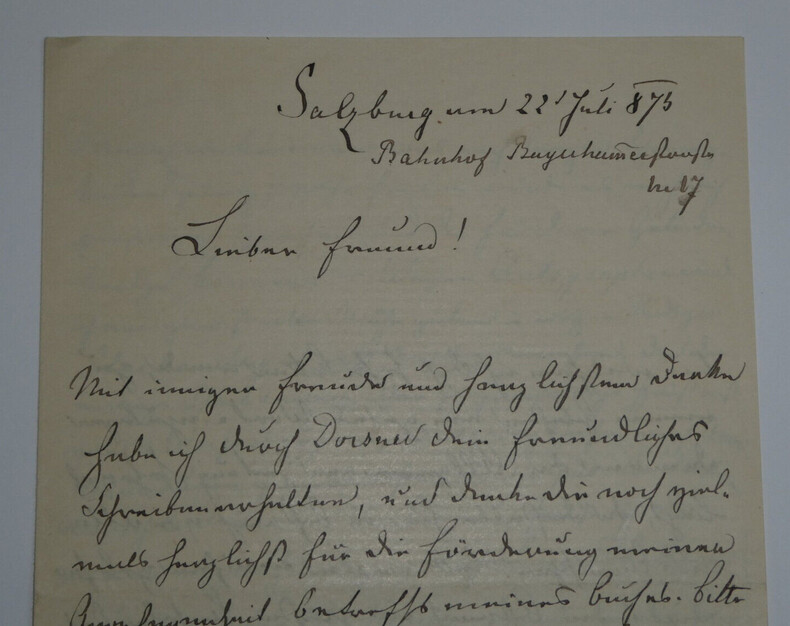 Salzburg am 22' Juli 875
Bahnhof Bayerhammerstrasse
Nr 17
Lieber Freund!
Mit inniger Freude und herzlichstem Danke
habe ich durch dein freundliches
Schreiben erhalten, und danke dir noch viel-
mals herzlichst für die Förderung meiner
Angelegenheit betreffs meines Buches. Bitte